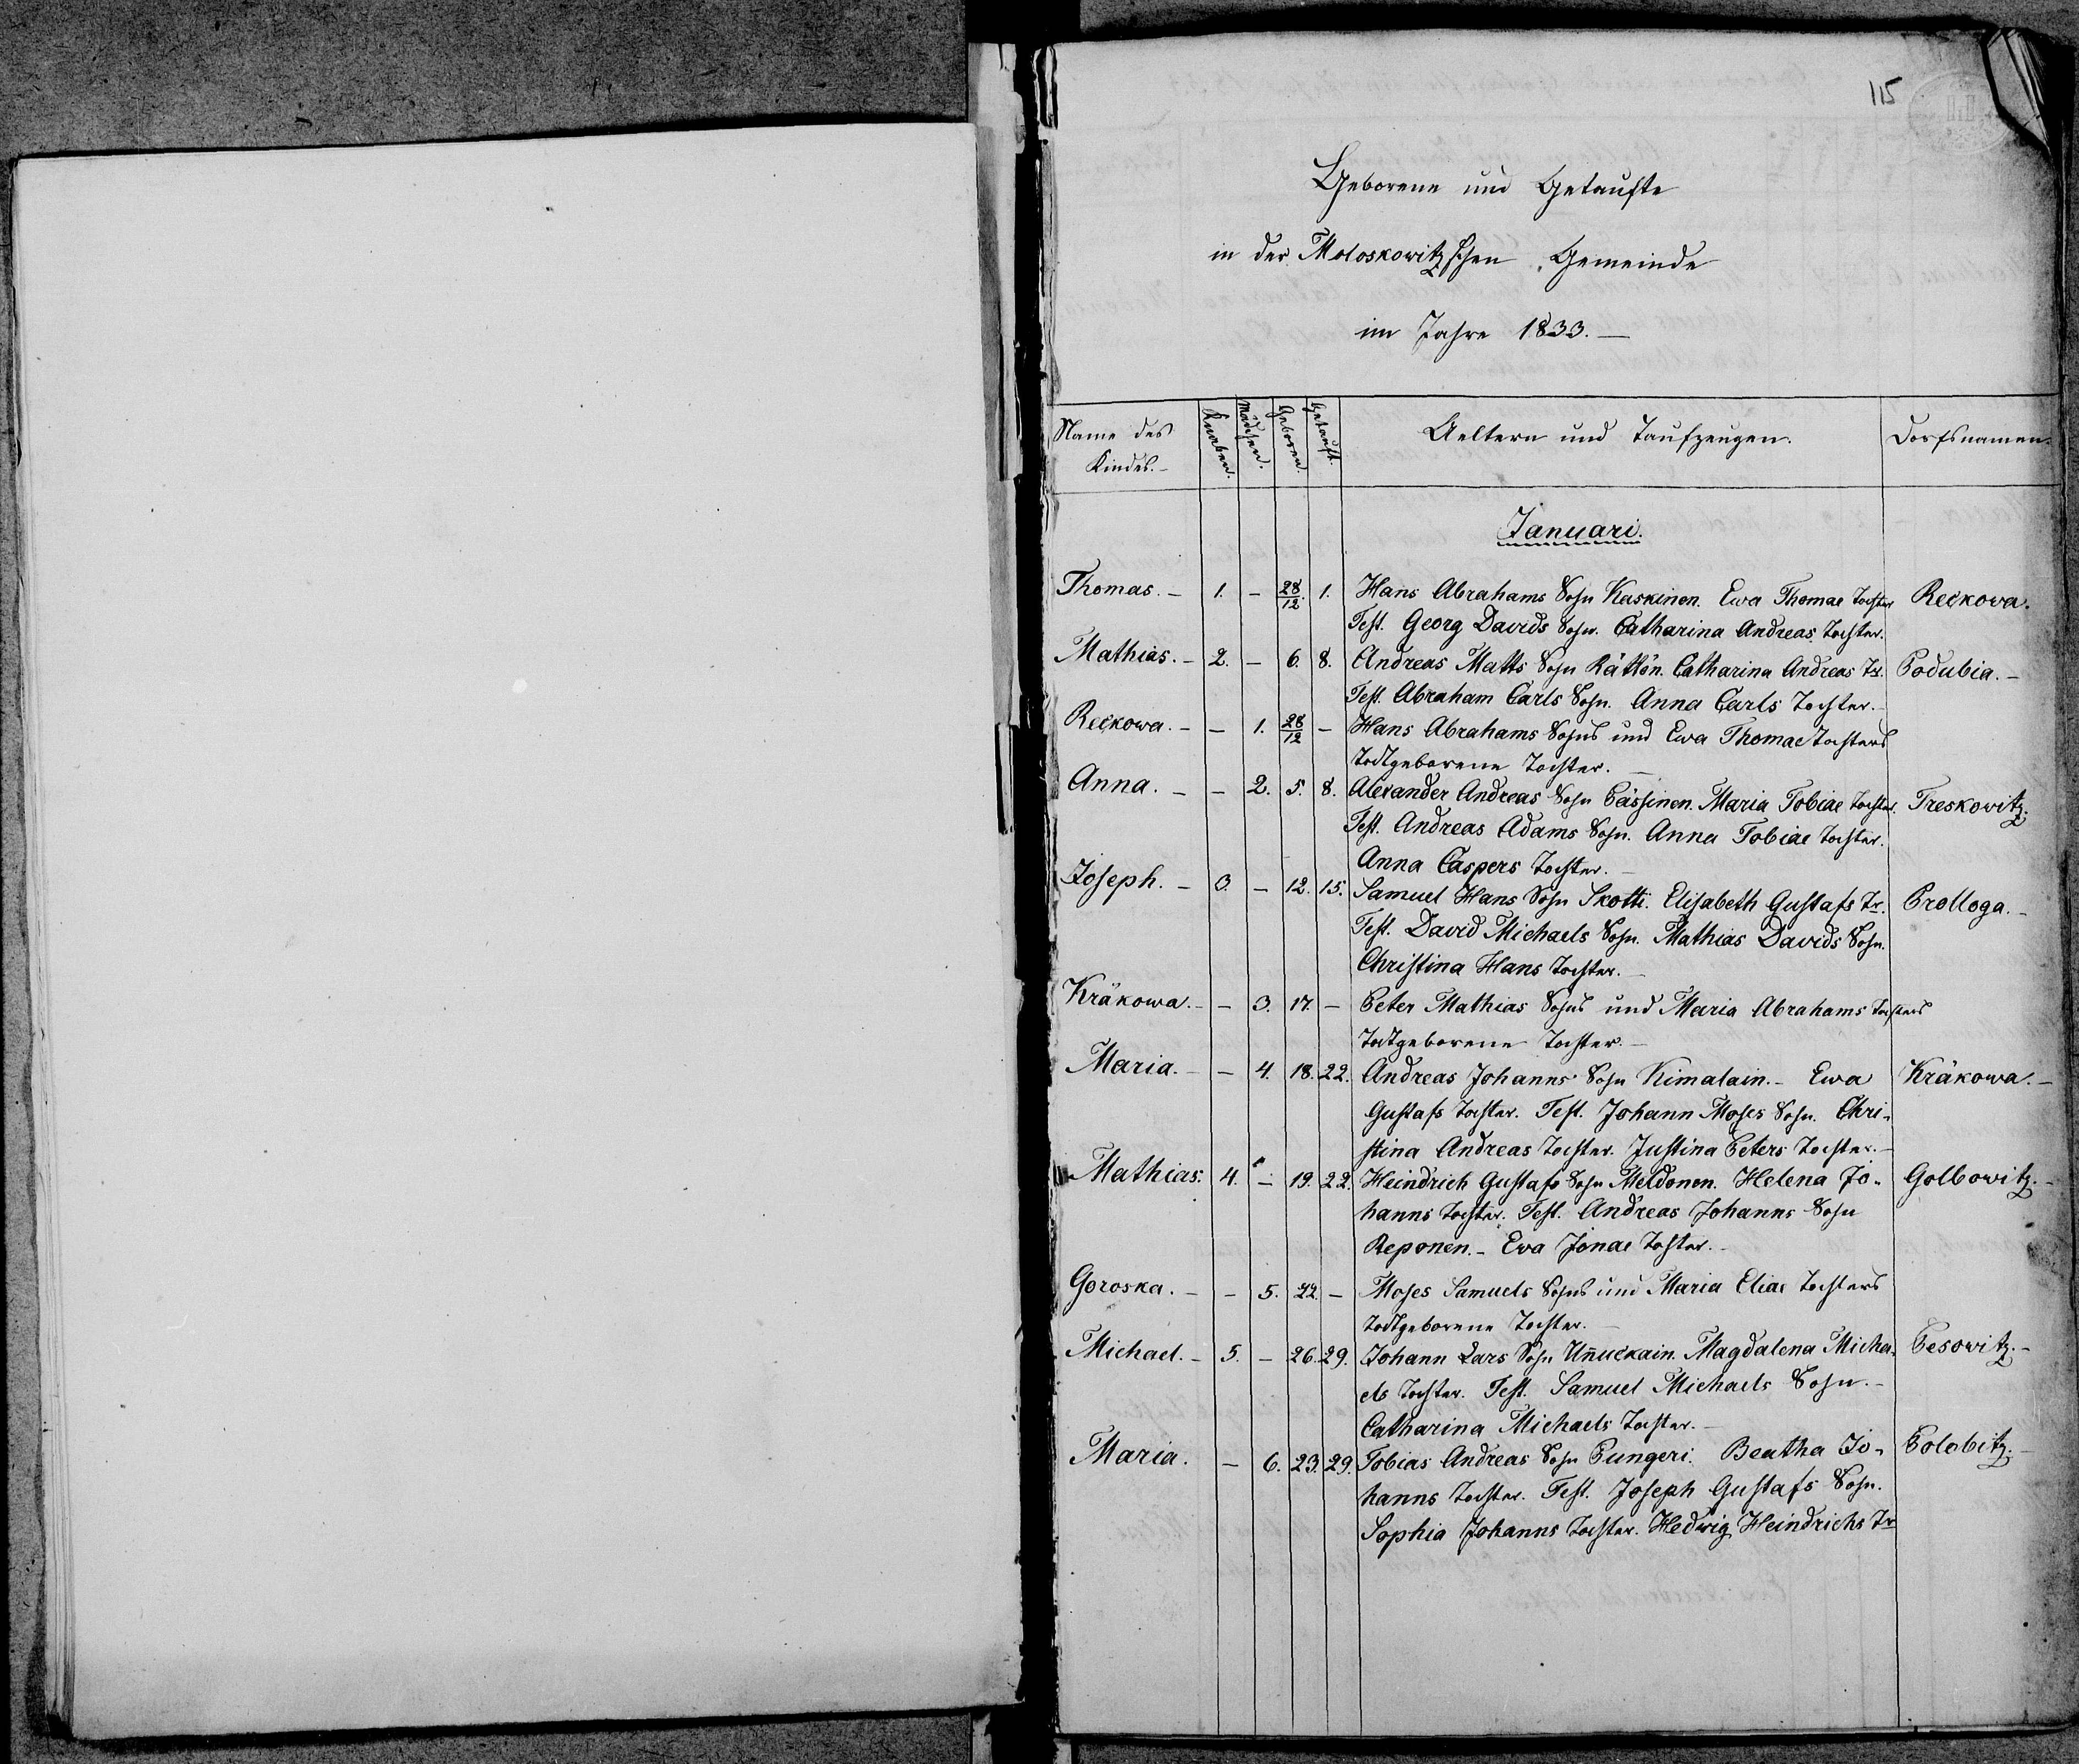 115
Geborene und Getaufte
in der Moloskowitzschen Gemeinde
im Jahre 1833. —
Name des Kindes. – Knaben. Mädchen. Geboren. Getauft. Aeltern und Taufzeugen. Dorfsnamen.
Januari.
Thomas. – 1. – 28/12. 1. Hans Abrahams Sohn Kaskinen. Ewa Thomae Tochter Reckowa.
Test. Georg Davids Sohn. Catharina Andreas Tochter.
Mathias. – 2. – 6. 8. Andreas Matts Sohn Rättön. Catharina Andreas Tr. Podubia. –
Test. Abraham Carls Sohn. Anna Carls Tochter. –
Reckowa. – – 1. 28/12 – Hans Abrahams Sohns und Ewa Thomae Tochters
Todtgeborene Tochter. —
Anna. – – 2. 5. 8. Alexander Andreas Sohn Pässinen. Maria Tobiae Tochter. Treskowitz.
Test. Andreas Adams Sohn. Anna Tobiae Tochter.
Anna Caspers Tochter. –
Joseph. – 3. – 12. 15. Samuel Hans Sohn Skotti. Elisabeth Gustafs Tr. Prolloga. –
Test. David Michaels Sohn. Mathias Davids Sohn.
Christina Hans Tochter. –
Kräkowa. – – 3. 17. – Peter Mathias Sohns und Maria Abrahams Tochters
Todtgeborene Tochter. –
Maria. – – 4. 18. 22. Andreas Johanns Sohn Kimalain. – Ewa Kräkowa. –
Gustafs Tochter. Test. Johann Moses Sohn. Chri-
stina Andreas Tochter. Justina Peters Tochter. –
Mathias. 4. – 19. 22. Heindrich Gustafs Sohn Meldonen. Helena Jo- Golbowitz. –
hanns Tochter. Test. Andreas Johanns Sohn
Reponen. – Ewa Jonae Tochter. –
Goroska. – – 5. 22. – Moses Samuels Sohns und Maria Eliae Tochters
Todtgeborene Tochter. —
Michael. – 5. – 26. 29. Johann Lars Sohn Un̄uckain. Magdalena Micha- Pesowitz. –
els Tochter. Test. Samuel Michaels Sohn. –
Catharina Michaels Tochter. –
Maria. – 6. 23. 29. Tobias Andreas Sohn Pungeri. Beatha Jo- Polobitz. –
hanns Tochter. Test. Joseph Gustafs Sohn.
Sophia Johanns Tochter. Hedwig Heindrichs Tr